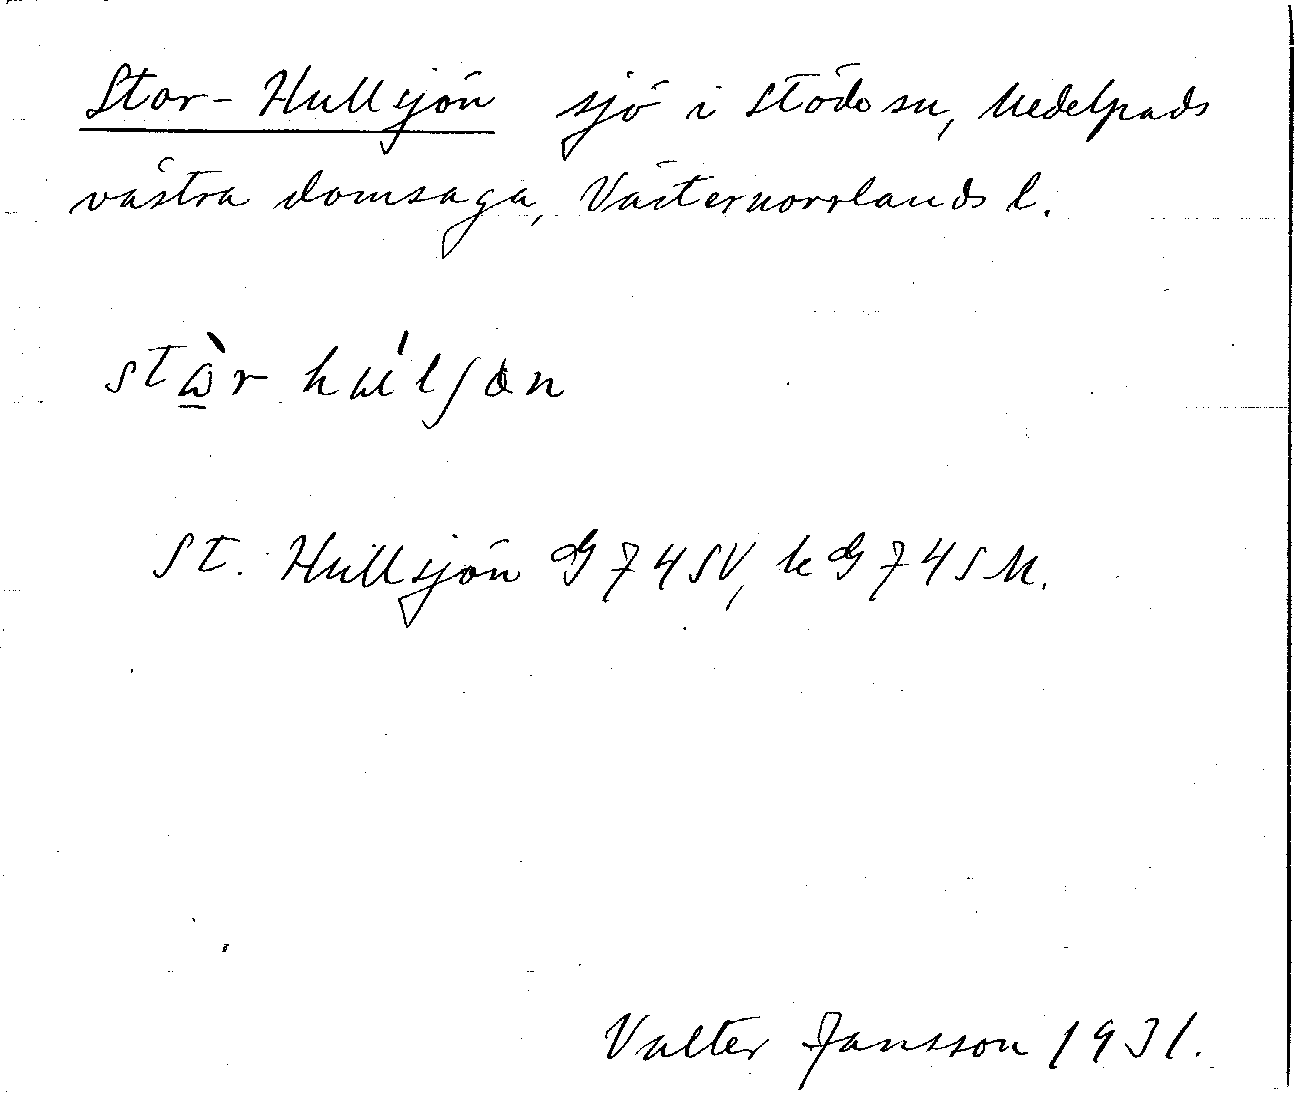 Stor-Hullsjön sjö i Stöde sn, Medelpads
västra domsaga, Västernorrlands l.
stὼr húlʃɵn
St. Hullsjön G 74 SV, k G 74 SM.
Valter Jansson 1931.